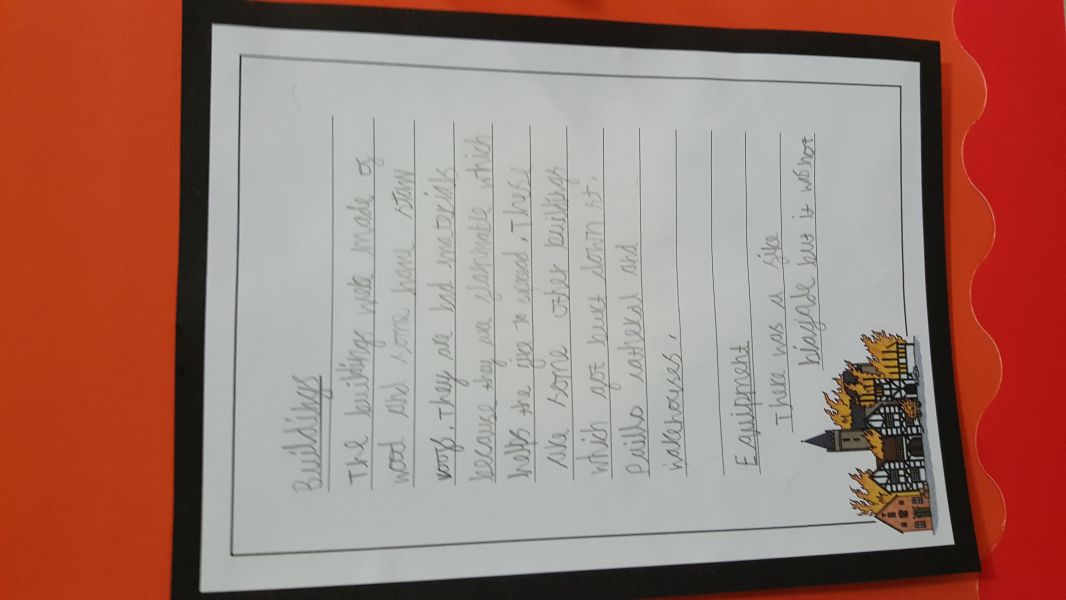 Buildings
The buildings were made of
wood and some have straw
roofs. They are bad materials
because they are flammable which
helps the fire to spread. These
are some other buildings
which got burt down st.
Paulls catheral and
warehouses.
Equipment
There was a fire
bragade but it was not